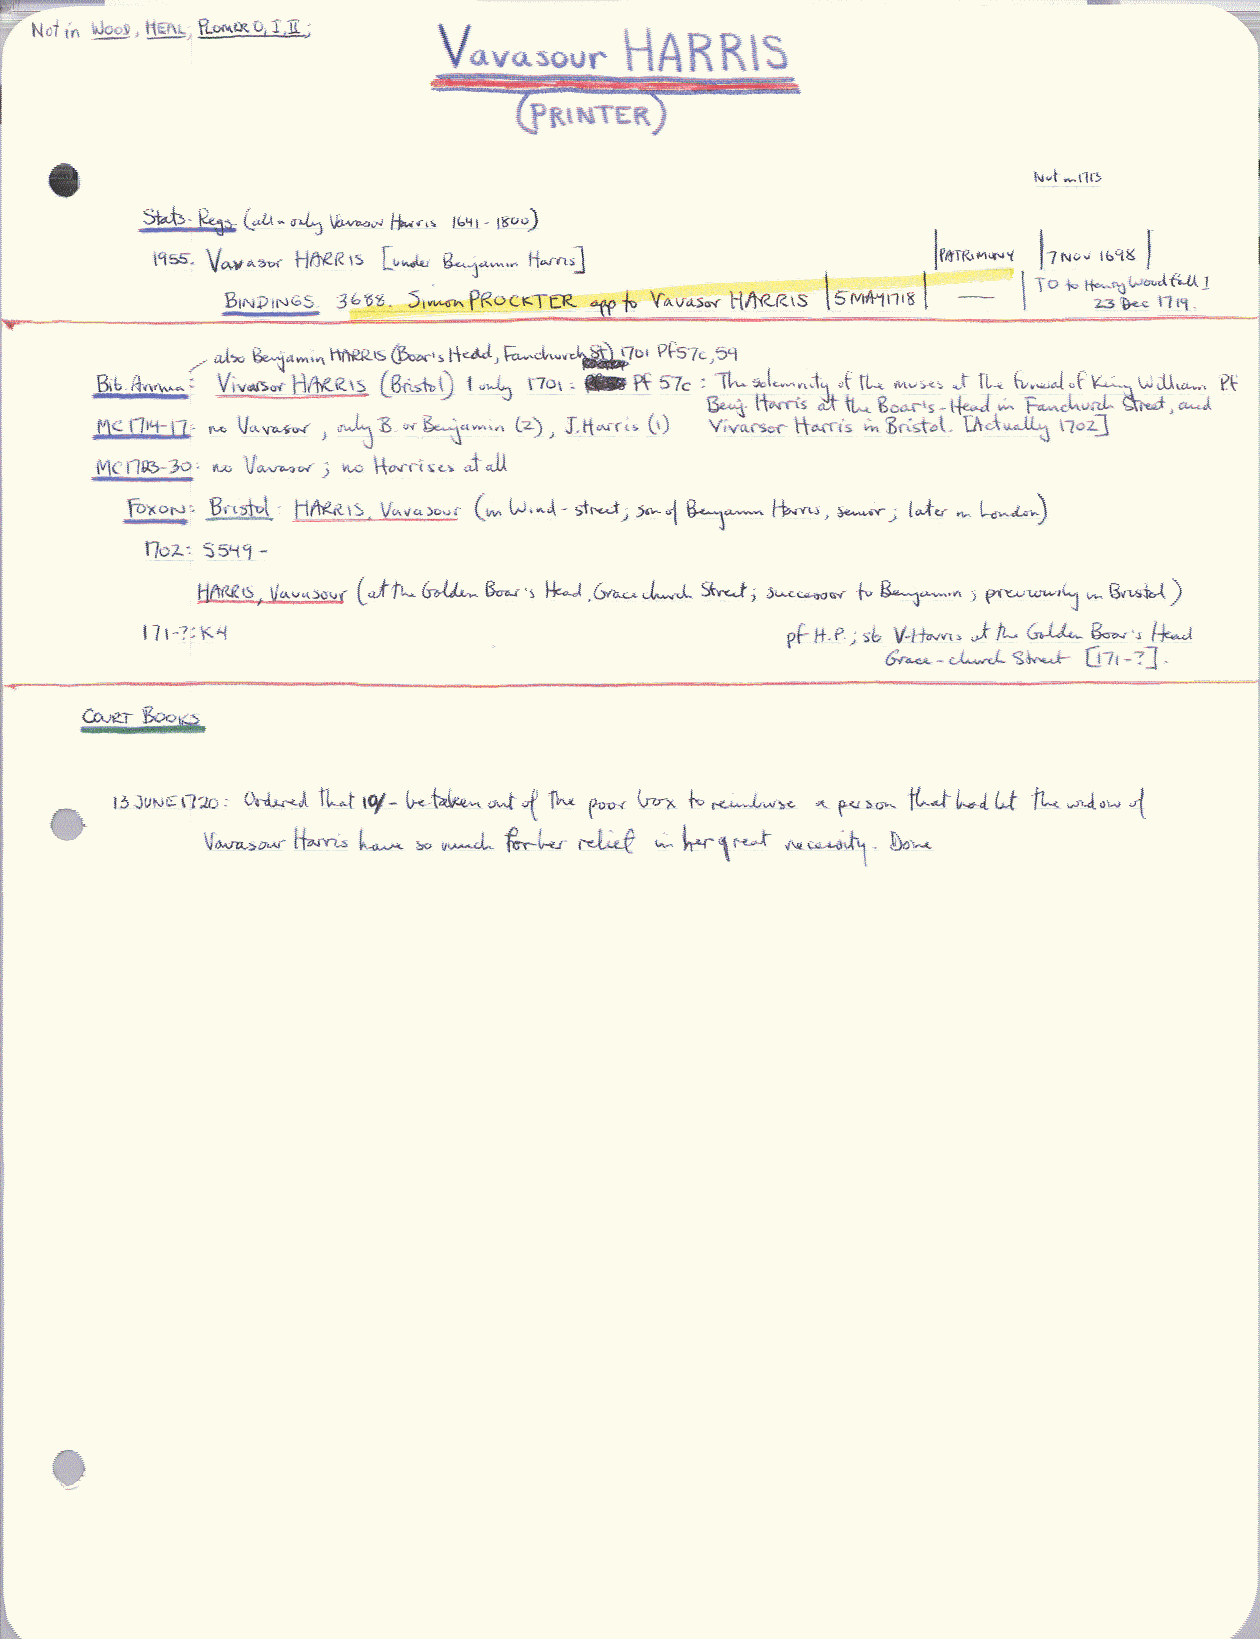 Not in WOOD, HEAL, PLOMER O, I, II;
Vavasour HARRIS
(PRINTER)
Not in 1713
Stats-Regs (all - only Vavasor Harris 1641-1800)
1955. Vavasor HARRIS [under Benjamin Harris] | PATRIMONY | 7 NOV 1698 |
BINDINGS 3688. Simon PROCKTER app to Vavasor HARRIS | 5 MAY 1718 | — | TO to Henry Woodfall I
23 Dec 1719.
also Benjamin HARRIS (Boar's Head, Fanchurch St) 1701 Pf57c, 59
Bib. Annua: Vivarsor HARRIS (Bristol) 1 only 1701: Pf 57c: The solemnity of the muses at the funeral of King William Pf
Benj. Harris at the Boar's-Head in Fanchurch Street, and
MC 1714-17: no Vavasor, only B. or Benjamin (2), J. Harris (1) Vivarsor Harris in Bristol. [Actually 1702]
MC 1723-30: no Vavasor; no Harrises at all
FOXON: Bristol - HARRIS, Vavasour (in Wind-street; son of Benjamin Harris, senior; later in London)
1702: S549-
HARRIS, Vavasour (at the Golden Boar's Head, Gracechurch Street; successor to Benjamin; previously in Bristol)
171-?: K4 pf H.P.; sb V. Harris at the Golden Boar's Head
Grace-church Street [171-?].
COURT BOOKS
13 JUNE 1720: Ordered that 10/- be taken out of the poor box to reimburse a person that had let the widow of
Vavasour Harris have so much for her relief in her great necessity. Done